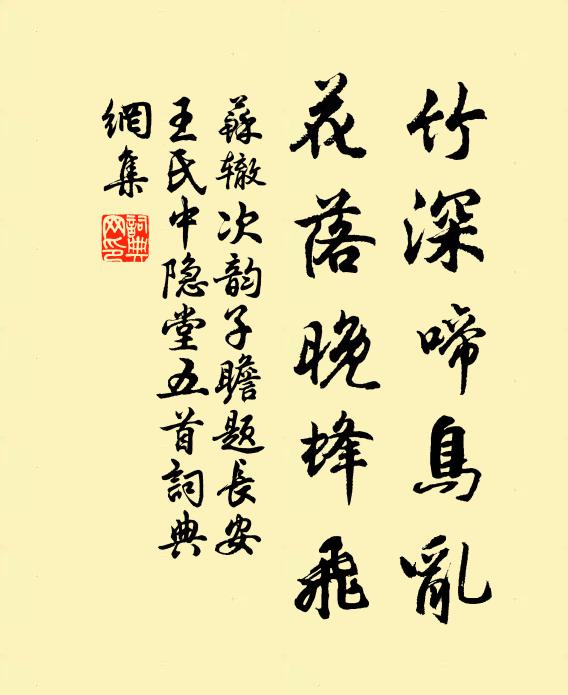 竹深啼鳥亂
花落晚蜂飛
蘇辙次韵子瞻题長安
王氏中隐堂五首詞典
網集
詞典网印